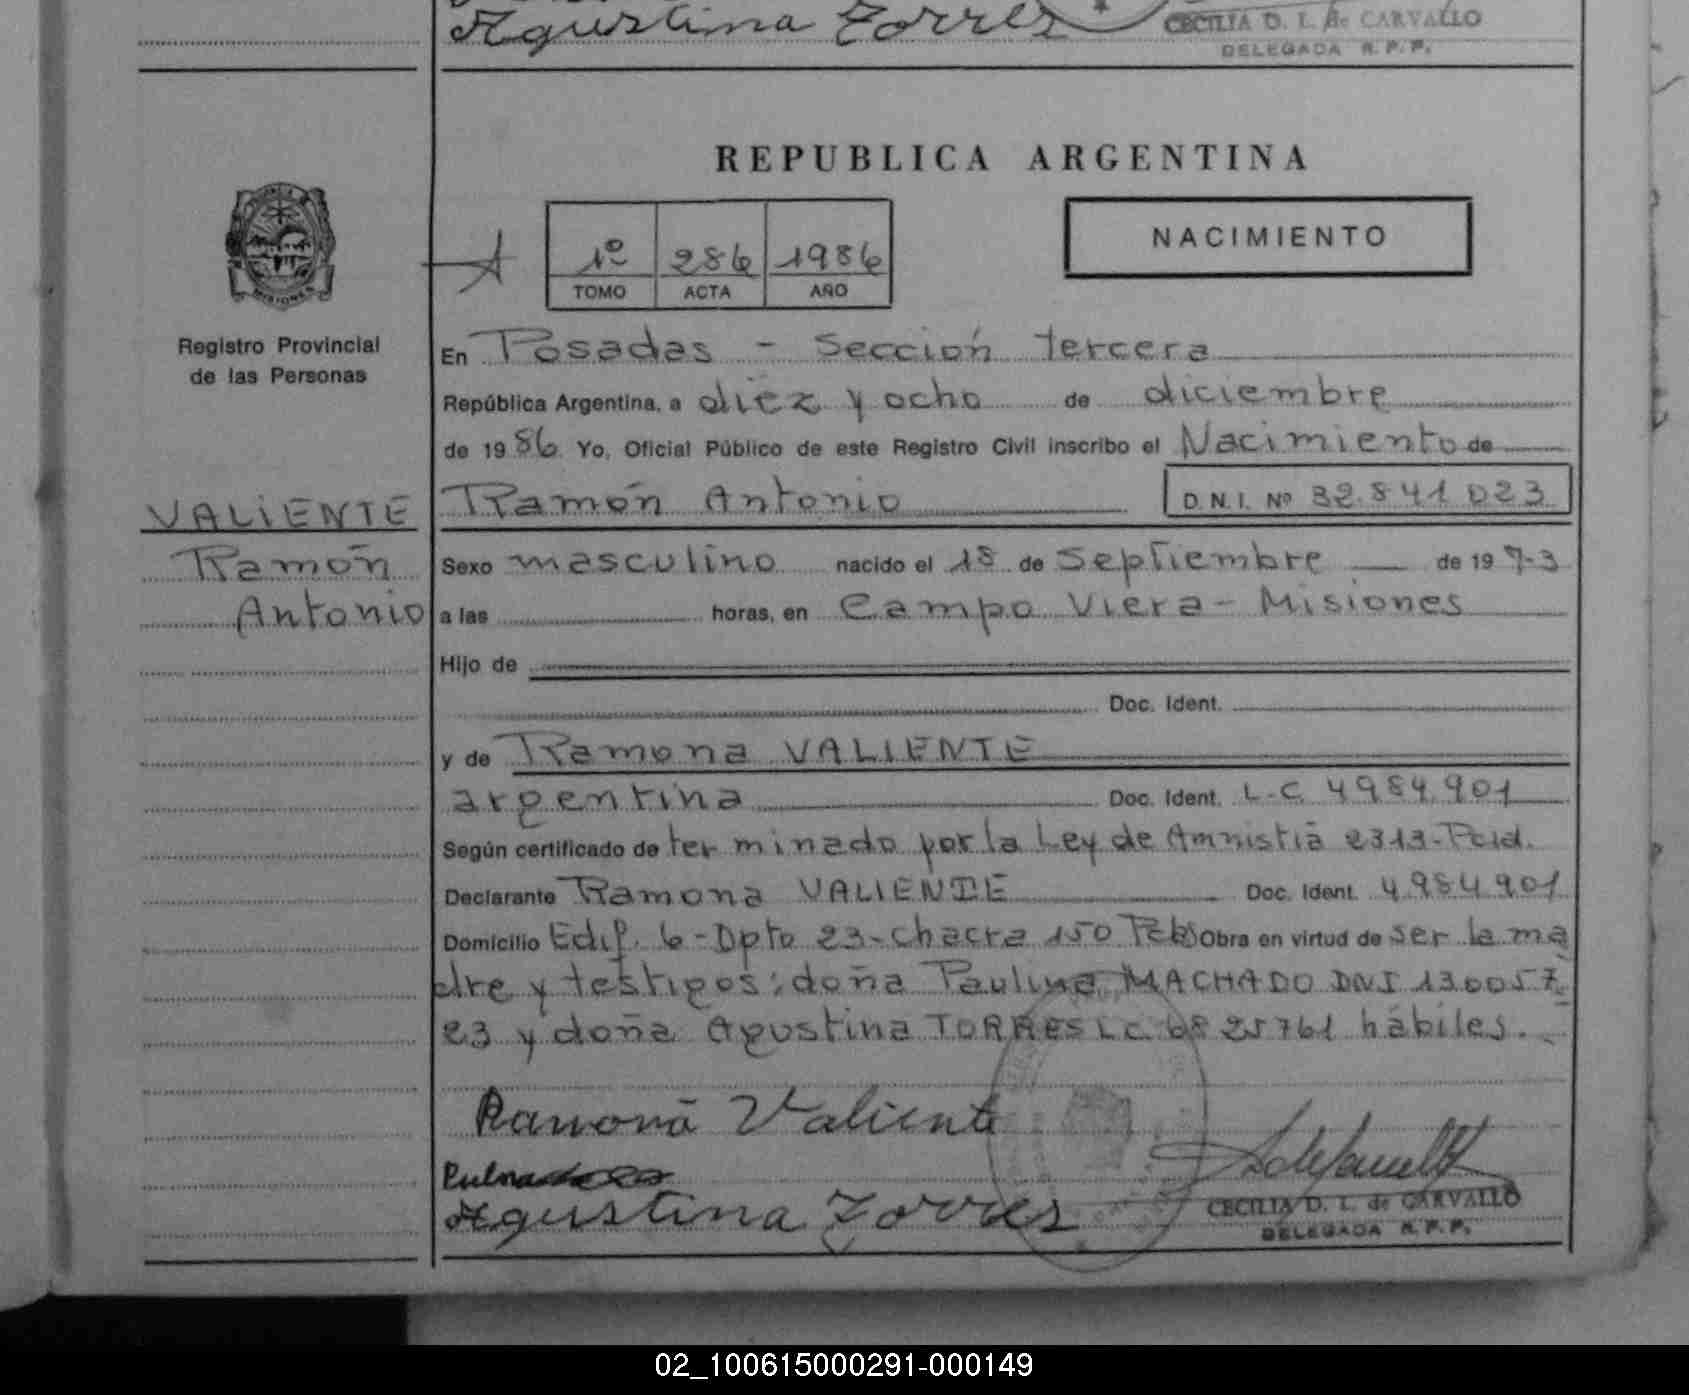 Agustina Torres
CECILIA D. L. de CARVALLO
DELEGADA R.P.P.
REPUBLICA ARGENTINA
MISIONES
Registro Provincial
de las Personas
1º 286 1986
TOMO ACTA AÑO
NACIMIENTO
En Posadas - Sección tercera
República Argentina, a diez y ocho de diciembre
de 1986. Yo, Oficial Público de este Registro Civil inscribo el Nacimiento de
VALIENTE
Ramón
Antonio
Ramón Antonio D.N.I. Nº 32.841.023
Sexo masculino nacido el 18 de Septiembre de 1973
a las horas, en Campo Viera - Misiones
Hijo de
Doc. Ident.
y de Ramona VALIENTE
argentina Doc. Ident. L.C. 4984.901
Según certificado de terminado por la Ley de Amnistía 2313-Pcial.
Declarante Ramona VALIENTE Doc. Ident. 4.984.901
Domicilio Edif. 6 - Dpto 23 - Chacra 150 Obra en virtud de ser la ma
dre y testigos: doña Paulina MACHADO DNI 130057
23 y doña Agustina TORRES L.C. 6825761 hábiles.
Ramona Valiente
Agustina Torres
CECILIA D. L. de CARVALLO
DELEGADA R.P.P.
02_100615000291-000149